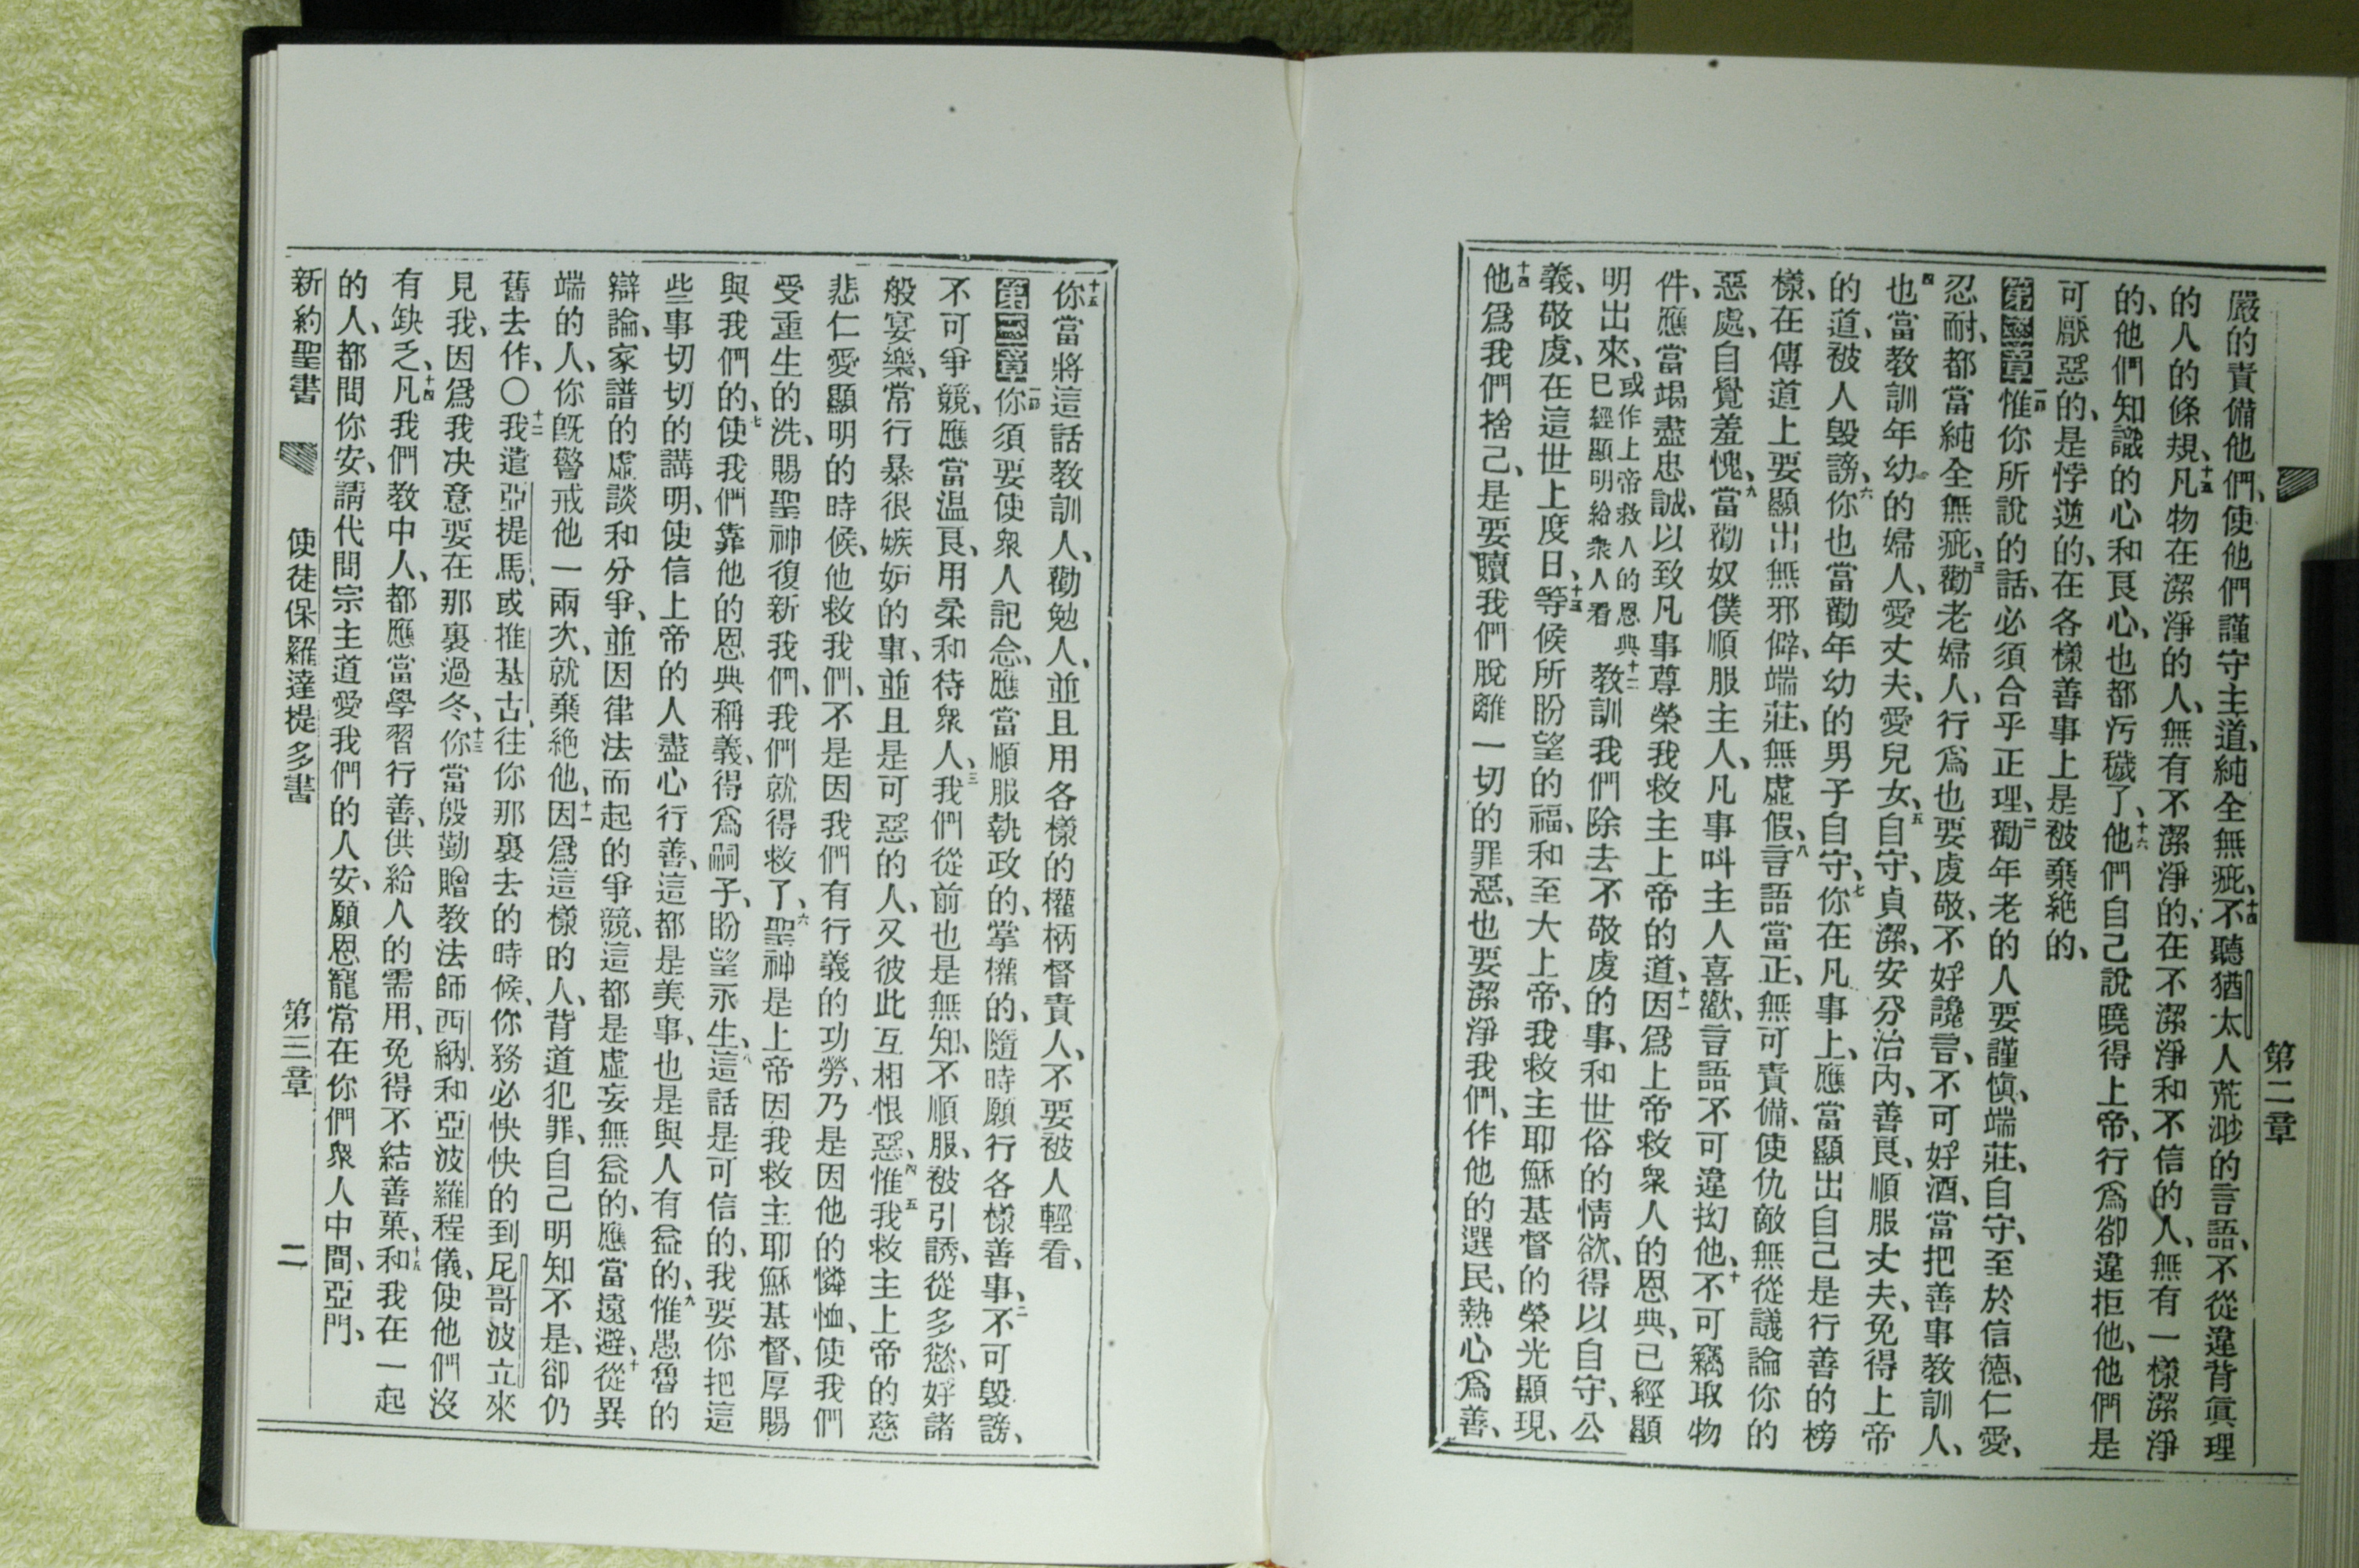 第二章
嚴的責備他們、使他們謹守主道、純全無疵、十四不聽猶太人荒渺的言語、不從違背眞理
的人的條規、十五凡物在潔淨的人、無有不潔淨的、在不潔淨和不信的人、無有一樣潔淨
的、他們知識的心和良心、也都汚穢了、十六他們自己說曉得上帝、行爲卻違拒他、他們是
可厭惡的、是悖逆的、在各樣善事上是被棄絕的、
第二章一節惟你所說的話、必須合乎正理、二勸年老的人要謹愼、端莊、自守、至於信德、仁愛、
忍耐、都當純全無疵、三勸老婦人、行爲也要虔敬、不好讒言、不可好酒、當把善事教訓人、
四也當教訓年幼的婦人、愛丈夫、愛兒女、五自守、貞潔、安分治內、善良、順服丈夫、免得上帝
的道、被人毀謗、六你也當勸年幼的男子自守、七你在凡事上、應當顯出自己是行善的榜
樣、在傳道上要顯出無邪僻、端莊、無虛假、八言語當正、無可責備、使仇敵無從議論你的
惡處、自覺羞愧、九當勸奴僕順服主人、凡事叫主人喜歡、言語不可違拗他、十不可竊取物
件、應當竭盡忠誠、以致凡事尊榮我救主上帝的道、十一因爲上帝救衆人的恩典、已經顯
明出來、或作上帝救人的恩典已經顯明給衆人看十二教訓我們除去不敬虔的事、和世俗的情欲、得以自守、公
義、敬虔、在這世上度日、十三等候所盼望的福、和至大上帝、我救主耶穌基督的榮光顯現、
十四他爲我們捨己、是要贖我們脫離一切的罪惡、也要潔淨我們、作他的選民、熱心爲善、
十五你當將這話教訓人、勸勉人、並且用各樣的權柄督責人、不要被人輕看、
第三章一節你須要使衆人記念、應當順服執政的、掌權的、隨時願行各樣善事、二不可毀謗、
不可爭競、應當溫良、用柔和待衆人、三我們從前也是無知、不順服、被引誘、從多慾、好諸
般宴樂、常行暴很嫉妒的事、並且是可惡的人、又彼此互相恨惡、四惟五我救主上帝的慈
悲仁愛顯明的時候、他救我們、不是因我們有行義的功勞、乃是因他的憐恤、使我們
受重生的洗、賜聖神復新我們、我們就得救了、六聖神是上帝因我救主耶穌基督、厚賜
與我們的、七使我們靠他的恩典稱義、得爲嗣子、盼望永生、八這話是可信的、我要你把這
些事切切的講明、使信上帝的人盡心行善、這都是美事、也是與人有益的、九惟愚魯的
辯論、家譜的虛談和分爭、並因律法而起的爭競、這都是虛妄無益的、應當遠避、十從異
端的人、你旣警戒他一兩次、就棄絕他、十一因爲這樣的人、背道犯罪、自己明知不是、卻仍
舊去作、〇十二我遣亞提馬、或推基古、往你那裏去的時候、你務必快快的到尼哥波立來
見我、因爲我决意要在那裏過冬、十三你當殷勤贈教法師西納、和亞波羅程儀、使他們沒
有缺乏、十四凡我們教中人、都應當學習行善、供給人的需用、免得不結善菓、十五和我在一起
的人、都問你安、請代問宗主道愛我們的人安、願恩寵常在你們衆人中間、亞門、
新約聖書　使徒保羅達提多書　第三章　二